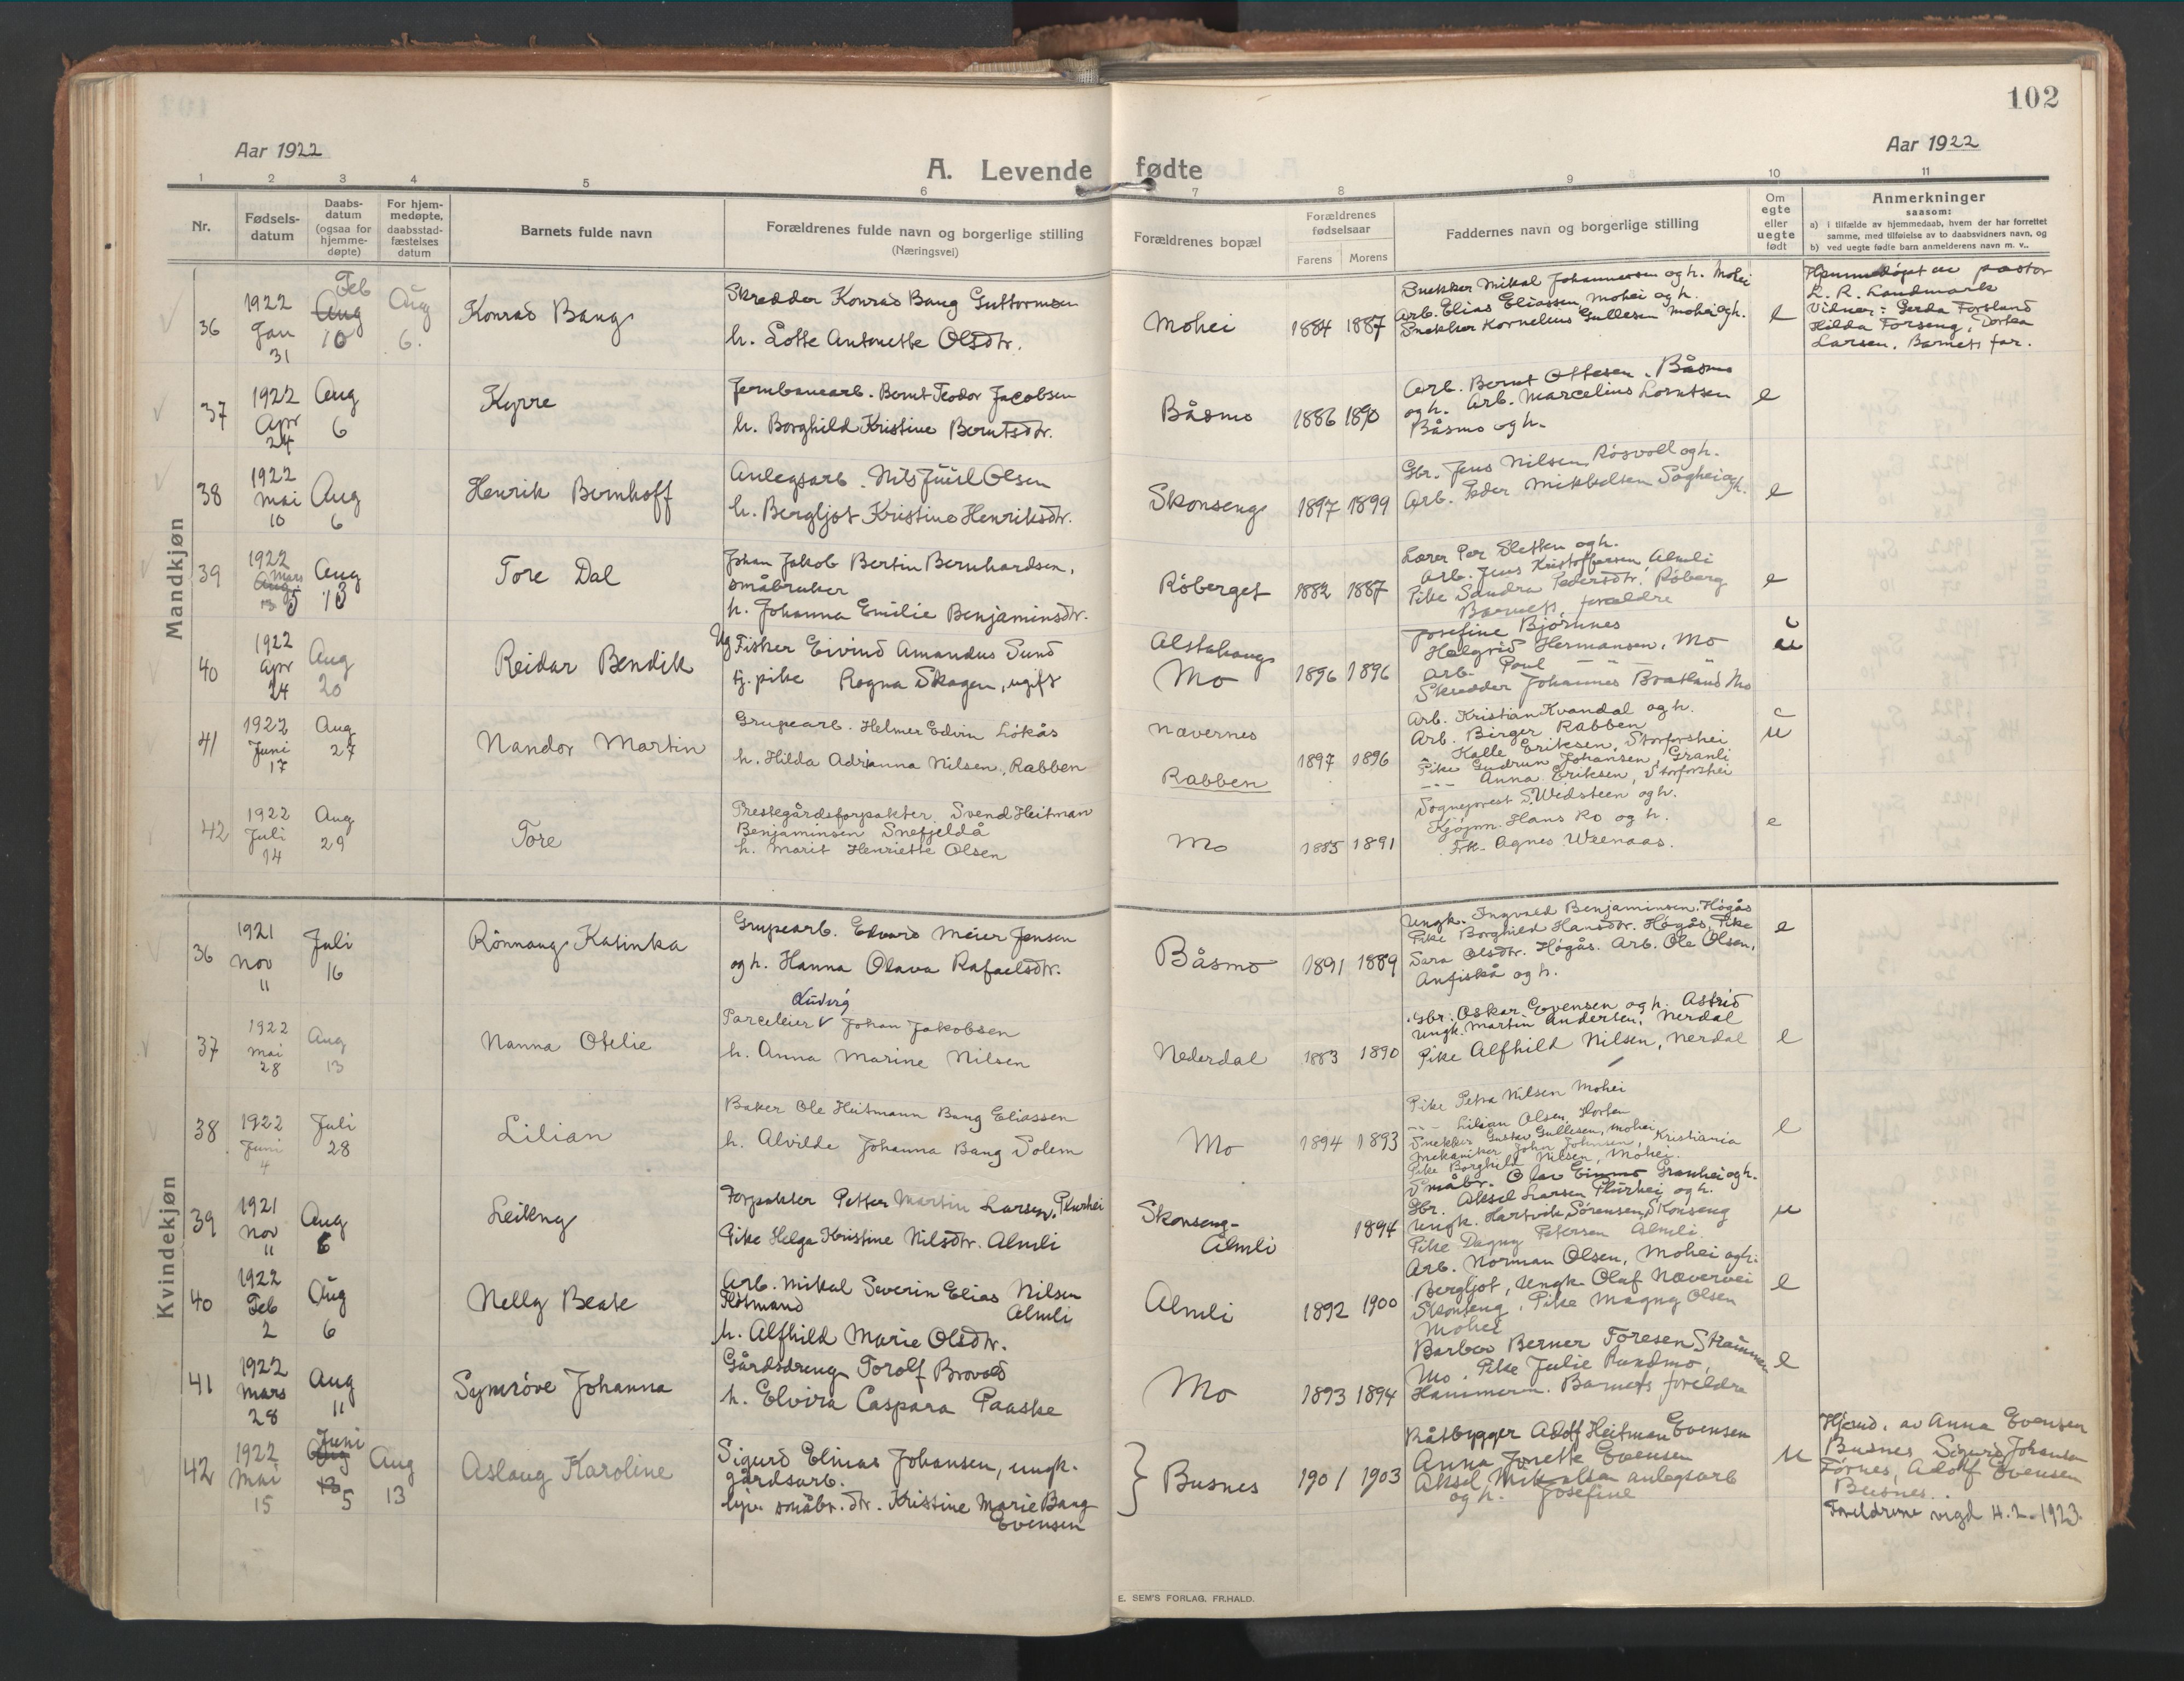 102
Aar 1922
Aar 1922
A. Levende fødte
1 2 3 4 5 6 7 8 9 10 11
Nr.
Fødsels-
datum
Daabs-
datum
(ogsaa for
hjemme-
døpte)
For hjem-
medøpte,
daabsstad-
fæstelses
datum
Barnets fulde navn
Forældrenes fulde navn og borgerlige stilling
(Næringsvei)
Forældrenes bopæl
Forældrenes
fødselsaar
Farens Morens
Faddernes navn og borgerlige stilling
Om
egte
eller
uegte
født
Anmerkninger
saasom:
a) i tilfælde av hjemmedaab, hvem der har forrettet
samme, med tilføielse av to daabsvidners navn, og
b) ved uegte fødte barn anmelderens navn m. v..
Mandkjøn
36
1922
Jan
31
Feb
Aug
10
Aug
6.
Konrad Bang
Skrædder Konrad Bang Guttormsen
h. Lotte Antonette Olsdtr.
Mohei
1884 1887
Snekker Mikal Johannesen og h. Mohei
Arb. Elias Eliassen, Mohei og h.
Snekker Kornelius Gullesen Mohei og h.
e
Hjemmedøpt av pastor
L. R. Landmark
Vidner: Gerda Forsland
Hilda Forseng, Dortea
Larsen. Barnets far.
37
1922
Apr
24
Aug
6
Kyrre
Jernbanearb. Bernt Teodor Jacobsen
h. Borghild Kristine Berntsdtr.
Båsmo
1886 1890
Arb. Bernt Ottesen, Båsmo
og h. Arb. Marcelius Lorntsen
Båsmo og h.
e
38
1922
Mai
10
Aug
6
Henrik Bernhoff
Anlegsarb. Nils Juul Olsen
h. Bergljot Kristine Henriksdtr.
Skonseng
1897 1899
Gbr. Jens Nilsen, Røsvoll og h.
Arb. Peder Mikkelsen Sagheia og h.
e
39
1922
Mars
Aug
13 5
Aug
13
Tore Dal
Johan Jakob Bertin Bernhardsen,
småbruker
h. Johanna Emilie Benjaminsdtr.
Røberget
1882 1887
Lærer Per Sletten og h.
Arb. Jens Kristoffersen, Almli
Pike Sandra Pedersdtr. Røberg
Barnets forældre
e
40
1922
Apr
24
Aug
20
Reidar Bendik
Ug Fisker Eivind Amandus Sund
tj. pike Ragna Skagen, ugift
Alstahaug
Mo
1896 1896
Josefine Bjørnnes
Helgrid Hermansen, Mo
Arb. Poul — " — "
Skredder Johannes Bratland Mo
41
1922
Juni
17
Aug
27
Nandor Martin
Grupearb. Helmer Edvin Lökås
h. Hilda Adrianna Nilsen, Rabben
Nævernes
Rabben
1897 1896
Arb. Kristian Kvandal og h.
Arb. Birger Rabben
Halle Eriksen, Storforshei
Pike Gudrun Johansen, Granli
--- Anna Eriksen, Storforshei
u
42
1922
Juli
14
Aug
29
Tore
Prestegårdsforpakter Svend Heitman
Benjaminsen Snefjeldå
h. Marit Henriette Olsen
Mo
1885 1891
Sogneprest S. Widsteen og h.
Kjøpm. Hans Ro og h.
Frk. Agnes Weenaas.
e
Kvindekjøn
36
1921
Nov
11
Juli
16
Rönnaug Katinka
Grupearb. Edvard Meier Jensen
og h. Hanna Olava Rafaelsdtr.
Båsmo
1891 1889
Ungk. Ingvald Benjaminsen, Høgås
Pike Borghild Hansdtr. Høgås, Pike
Sara Olsdtr. Høgås. Arb. Ole Olsen,
Anfiskå og h.
e
37
1922
Mai
28
Aug
13
Nanna Otelie
Ludvig
Parceleier v Johan Jakobsen
h. Anna Marine Nilsen
Nederdal
1883 1890
Gbr. Oskar Evensen og h. Astrid
Ungk. Martin Andersen, Nerdal
Pike Alfhild Nilsen, Nerdal
e
38
1922
Juni
4
Juli
28
Lilian
Baker Ole Heitmann Bang Eliassen
h. Alvilde Johanna Bang Solem
Mo
1894 1893
Pike Petra Nilsen Mohei
--- Lilian Olsen, Horten
Snekker Gustav Gullesen, Mohei
Mekaniker John Johnsen, Kristiania
Pike Borghild Nilsen, Mohei.
e
39
1921
Nov
11
Aug
6
Leikny
Forpakter Petter Martin Larsen, Plurhei
Pike Helga Kristine Nilsdtr. Almli
Skonseng-
Almli
1894
Småbr. Olav Einmo Granhei og h.
Gbr. Aksel Larsen Plurhei og h.
Ungk. Hartvik Sørensen, Skonseng
Pike Dagny Petersen Almli.
u
40
1922
Feb
2
Aug
6
Nelly Beate
Arb. Mikal Severin Elias Nilsen
Flötmand Almli
h. Alfhild Marie Olsdtr.
Almli
1892 1900
Arb. Norman Olsen, Mohei og h.
Bergljot, Ungk. Olaf Nævervei
Skonseng, Pike Magny Olsen
Mohei
e
41
1922
Mars
28
Aug
11
Symrøve Johanna
Gårdsdreng Torolf Brovold
h. Elvira Caspara Paaske
Mo
1893 1894
Barber Berner Toresen, Strammen
Mo. Pike Julie Rundmo,
Hammeren. Barnets foreldre
e
42
1922
Mai
15
Juni
Aug
13
5
Aug
13
Aslaug Karoline
Sigurd Elinus Johansen, ungk.
gårdsarb.
hjv. småbr. dtr. Kristine Marie Bang
Evensen
Busnes
1901 1903
Båtbygger Adolf Heitman Evensen
Anna Jonette Evensen
Aksel Mikalsen anlegsarb
og h. Josefine
u
Hjemd. av Anna Evensen
Busnes, Sigurd Johansen
Førnes, Adolf Evensen
Busnes.
Foreldrene vigd 4.2.1923.
E. SEM'S FORLAG, FR.HALD.